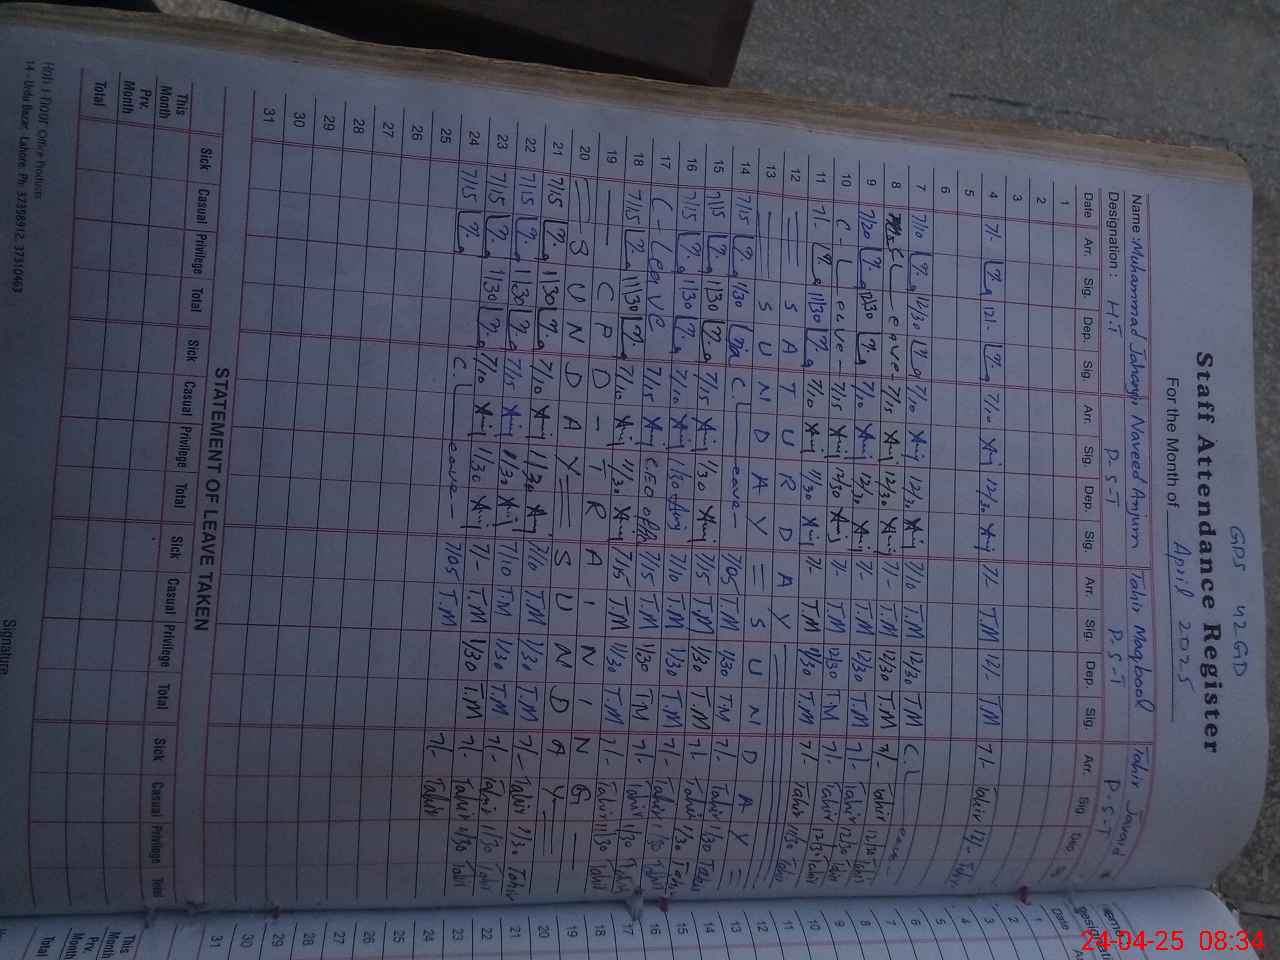 GPS 42GD
Staff Attendance Register
For the Month of April 2025
Name : Muhammad Jahangir Naveed Anjum Tahir Maqbool Tahir Jawaid
Designation : H.T P-S-T P-S-T P-S-T
Date Arr. Sig. Dep. Sig. Arr. Sig. Dep. Sig. Arr. Sig. Dep. Sig. Arr. Sig. Dep.
1
2
3
4 7/- 12/- 7/10 12/30 7/- T.M 12/- T.M 7/- Tahir 12/- Tahir
5
6
7 7/10 12/30 7/10 12/30 7/10 T.M 12/30 T.M C.L
8 C L eave - 7/15 12/30 7/- T.M 12/30 T.M 7/- Tahir 12/30
9 7/20 12/30 7/10 12/30 7/- T.M 12/30 T.M 7/- Tahir 12/30 Tahir
10 C - L eave - 7/15 12/30 7/- T.M 12/30 T.M 7/- Tahir 12/30 Tahir
11 7/- 11/30 7/10 11/30 7/- T.M 11/30 T.M 7/- Tahir 11/30 Tahir
12 S A T U R D A Y
13 S U N D A Y = S U N D A Y =
14 7/15 1/30 C.L eave - 7/05 T.M 1/30 T.M 7/- Tahir 1/30 Tahir
15 7/15 1/30 7/15 1/30 7/15 T.M 1/30 T.M 7/- Tahir 1/30 Tahir
16 7/15 1/30 7/10 1/30 7/10 T.M 1/30 T.M 7/- Tahir 1/30 Tahir
17 C - Leave 7/15 CEO Office 7/15 T.M 1/30 T.M 7/- Tahir 1/30 Tahir
18 7/15 11/30 7/10 11/30 7/15 T.M 11/30 T.M 7/- Tahir 11/30 Tahir
19 C P D - T R A I N I N G -
20 S U N D A Y = S U N D A Y
21 7/15 1/30 7/10 1/30 7/10 T.M 1/30 T.M 7/- Tahir 1/30 Tahir
22 7/15 1/30 7/15 1/30 7/10 T.M 1/30 T.M 7/- Tahir 1/30 Tahir
23 7/15 1/30 7/10 1/30 7/- T.M 1/30 T.M 7/- Tahir 1/30 Tahir
24 7/15 C.L eave - 7/05 T.M 7/- Tahir
25
26
27
28
29
30
31
STATEMENT OF LEAVE TAKEN
Sick Casual Privilege Total Sick Casual Privilege Total Sick Casual Privilege Total Sick Casual Privilege Total
This Month
Prv. Month
Total
Signature
14-Urdu Bazar, Lahore Ph: 37358912, 37310463
Date
1
2
3
4
5
6
7
8
9
10
11
12
13
14
15
16
17
18
19
20
21
22
23
24
25
26
27
28
29
30
31
This Month
Prv. Month
Total
24-04-25 08:34